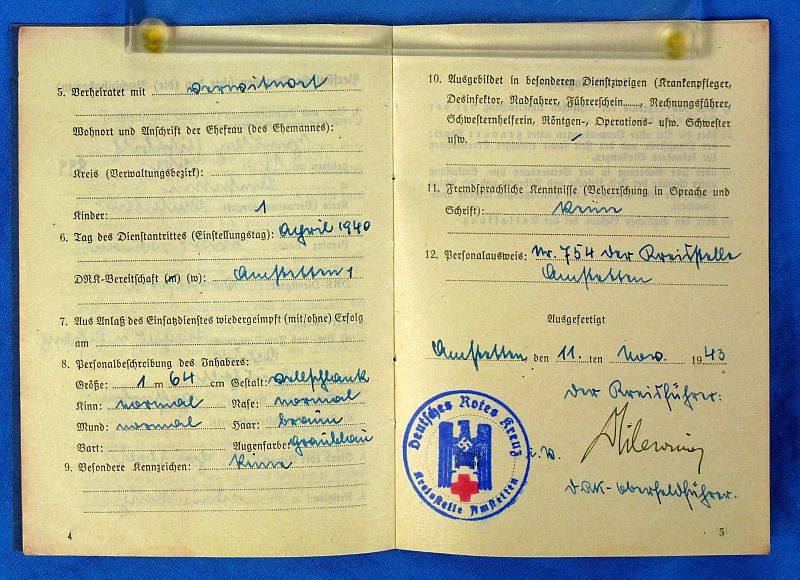 5. Verheiratet mit verwitwet
Wohnort und Anschrift der Ehefrau (des Ehemannes):
Kreis (Verwaltungsbezirk):
Kinder: 1
6. Tag des Dienstantrittes (Einstellungstag): April 1940
DRK-Bereitschaft (m) (w): Amstetten 1
7. Aus Anlaß des Einsatzdienstes wiedergeimpft (mit/ohne) Erfolg
am
8. Personalbeschreibung des Inhabers:
Größe: 1 m 64 cm Gestalt: vollschlank
Kinn: normal Nase: normal
Mund: normal Haar: braun
Bart: Augenfarbe: graublau
9. Besondere Kennzeichen: Keine
4
10. Ausgebildet in besonderen Dienstzweigen (Krankenpfleger,
Desinfektor, Radfahrer, Führerschein, Rechnungsführer,
Schwesternhelferin, Röntgen-, Operations- usw. Schwester
usw.
11. Fremdsprachliche Kenntnisse (Beherrschung in Sprache und
Schrift): Keine
12. Personalausweis: Nr. 754 der Kreisstelle
Amstetten
Ausgefertigt
Amstetten den 11. ten Nov. 1943
Der Kreisführer:
Deutsches Rotes Kreuz
Kreisstelle Amstetten
DRK-Oberfeldführer.
5